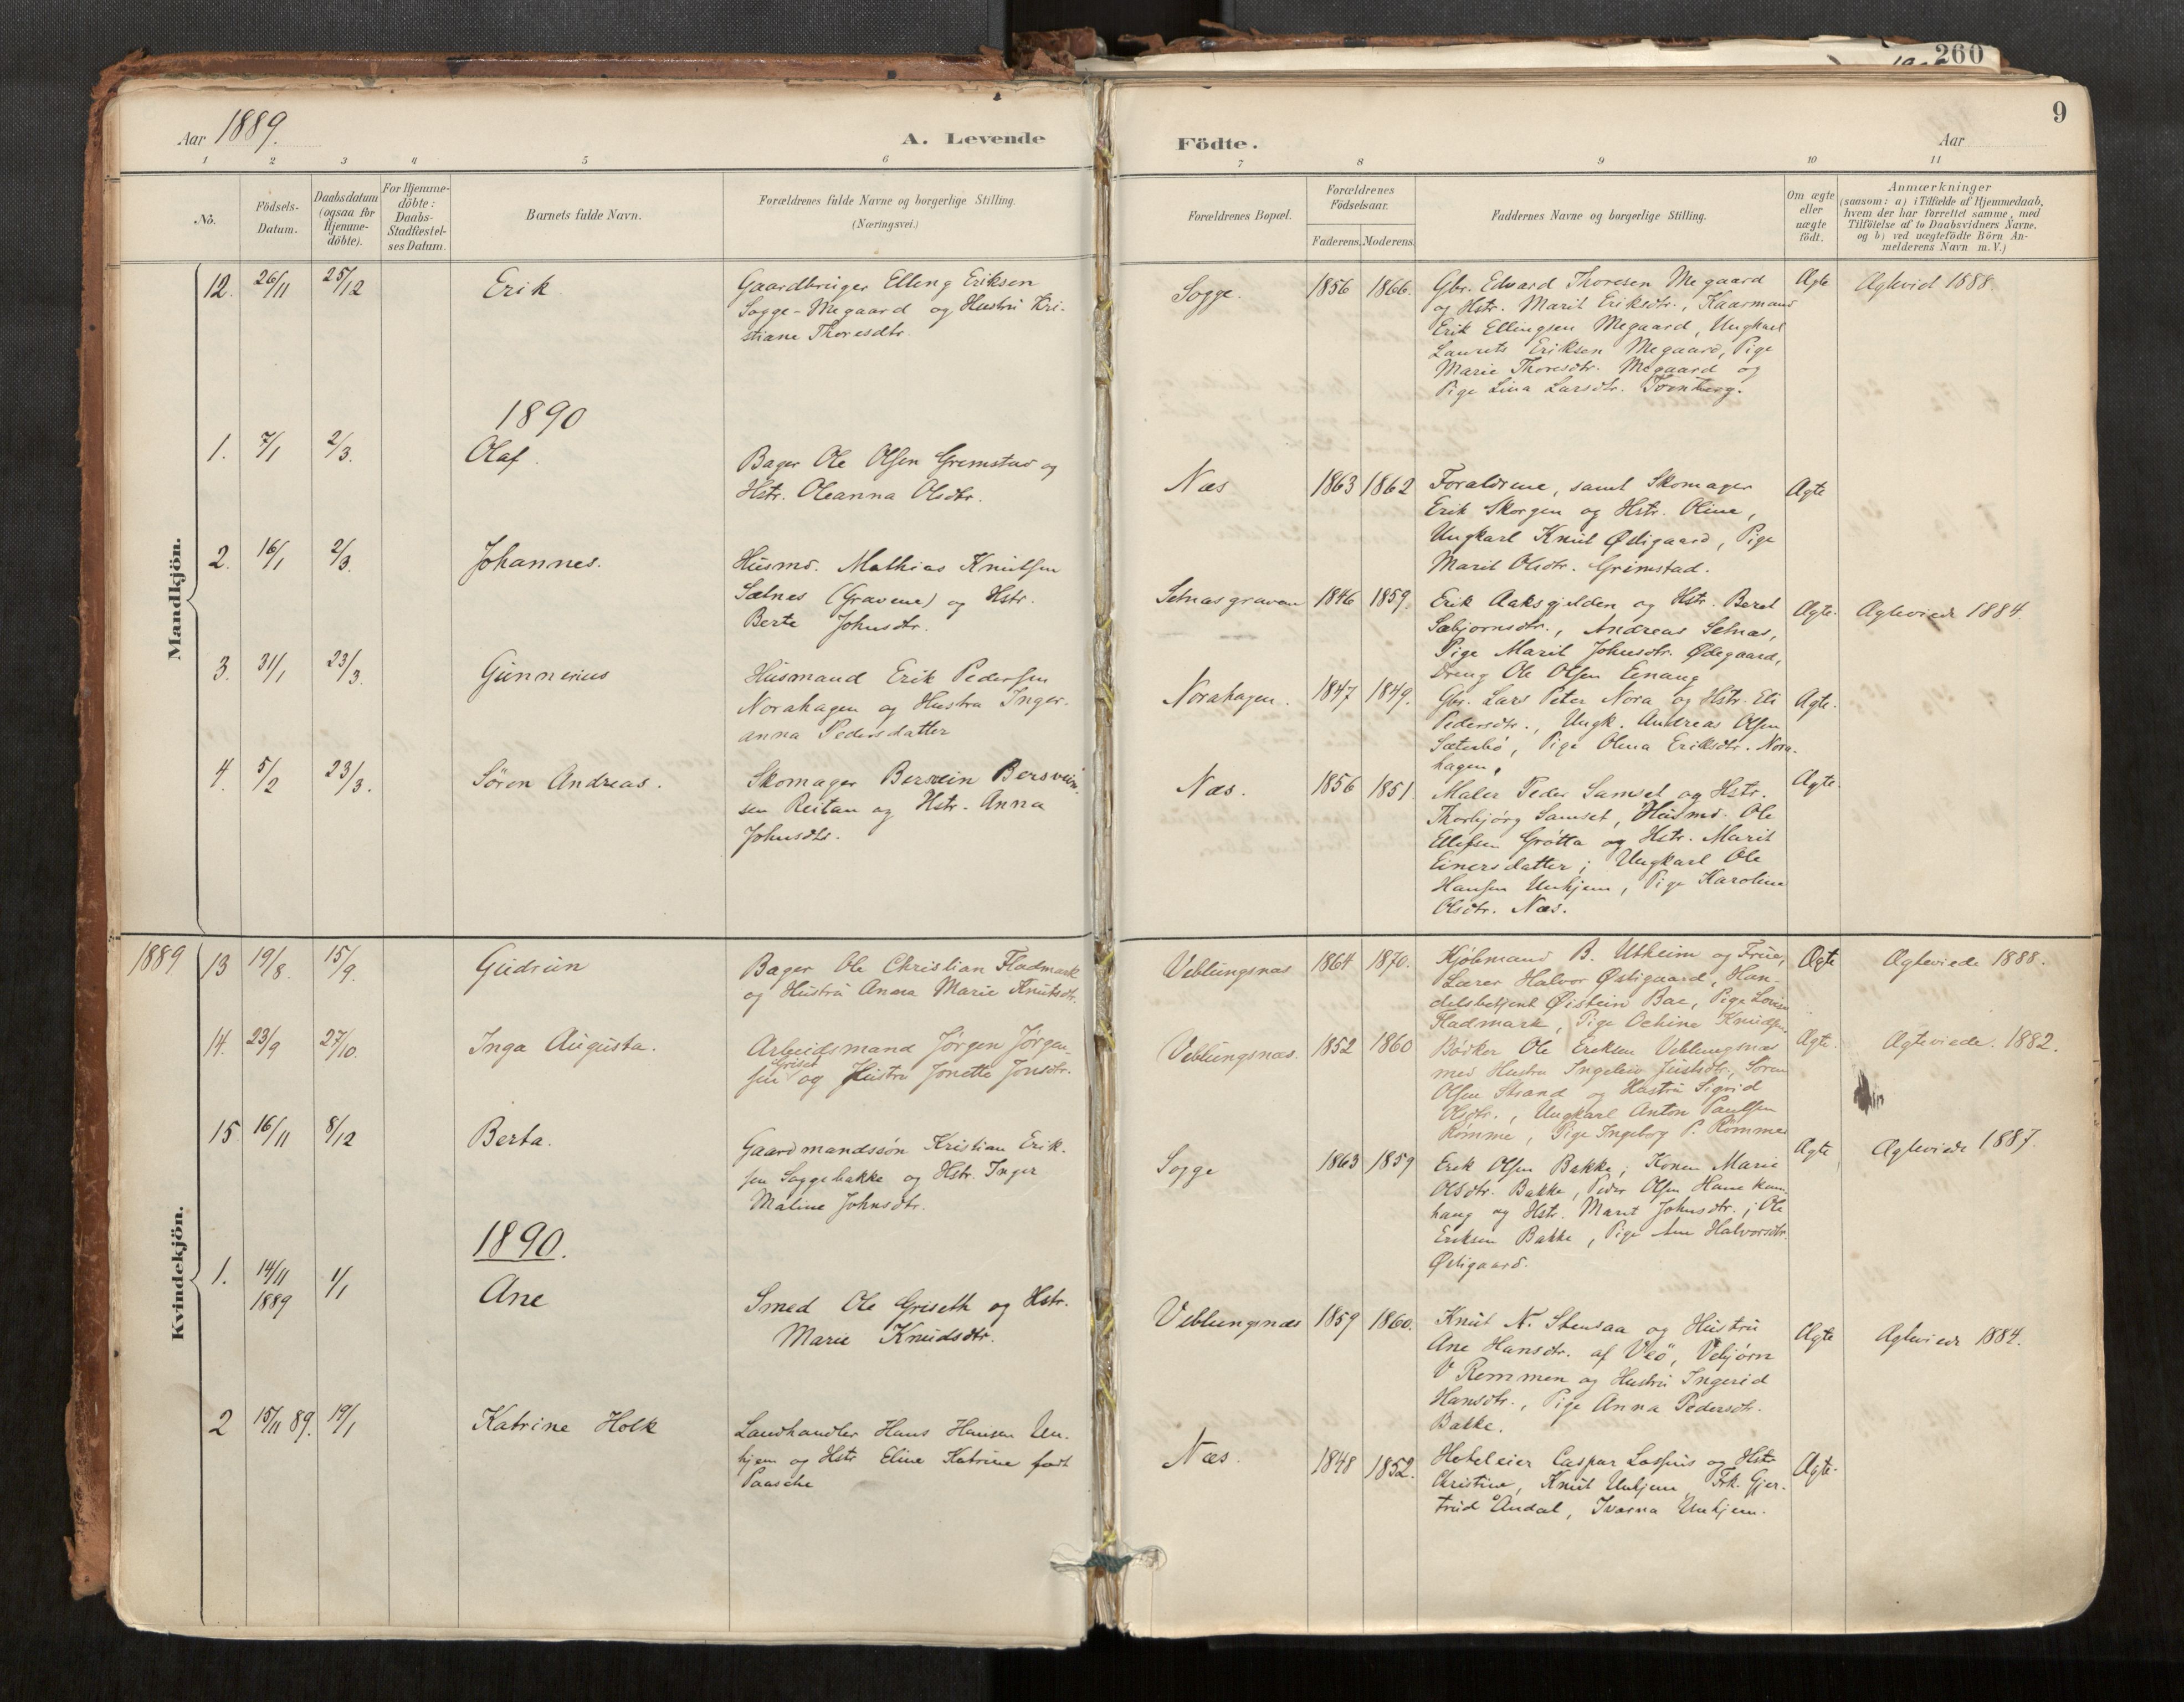 260
9
Aar 1889.
A. Levende
Födte.
Aar
1 2 3 4 5 6 7 8 9 10 11
No.
Födsels-
Datum.
Daabsdatum
(ogsaa for
Hjemme-
döbte).
For Hjemme-
döbte:
Daabs-
Stadfæstel-
ses Datum.
Barnets fulde Navn.
Forældrenes fulde Navne og borgerlige Stilling.
(Næringsvei.)
Forældrenes Bopæl.
Forældrenes
Födselsaar.
Faderens. Moderens.
Faddernes Navne og borgerlige Stilling.
Om ægte
eller
uægte
födt.
Anmærkninger
(saasom: a) i Tilfælde af Hjemmedaab,
hvem der har forrettet samme, med
Tilföielse af to Daabsvidners Navne.
og b) ved uægtefödte Börn An-
melderens Navn m. V.)
Mandkjön.
12. 26/11 25/12 Erik
Gaardbruger Elling Eriksen
Sogge-Megaard og Hustru Kri-
stiane Thoresdtr.
Sogge. 1856 1866.
Gbr. Edvard Thoresen Megaard
og Hstr. Marit Eriksdtr., Kaarmand
Erik Ellingsen Megaard, Ungkarl
Laurits Eriksen Megaard, Pige
Marie Thoresdtr. Megaard og
Pige Lina Larsdtr.
Ægte Ægtevid 1888
1890
1. 7/1 2/3. Olaf.
Bager Ole Olsen Grimstad og
Hstr. Oleanna Olsdtr.
Næs 1863 1862
Forældrene, samt Skomager
Erik Skorgen og Hstr. Oline,
Ungkarl Knut Ødigaard, Pige
Marit Olsdtr. Grimstad.
Ægte
2. 16/1 2/3. Johannes.
Husmd. Mathias Knutsen
Sætnes (Gravene) og Hstr.
Berte Johnsdtr.
Setnæsgraven 1846 1859.
Erik Aaksgjelden og Hstr. Beret
Sæbjornsdtr., Andreas Setnæs,
Pige Marit Johnsdtr. Ødegaard,
Dreng Ole Olsen Einang
Ægte. Ægteviede 1884.
3. 31/1 23/3. Gunnerius
Husmand Erik Pedersen
Norahagen og Hustru Inger-
anna Pedersdatter
Norahagen. 1847 1849.
Gbr. Lars Peter Nora og Hstr. Eli
Pedersdtr., Ungk. Andreas Olsen
Sæterbö, Pige Olina Eriksdtr. Nora-
hagen.
Ægte.
4. 5/2 23/3. Sören Andreas.
Skomager Bersvein Bersvein-
sen Reitan og Hstr. Anna
Johnsdtr.
Næs. 1856 1851.
Maler Peder Samset og Hstr.
Thorbjörg Samset, Husmd. Ole
Ellefsen Grötta og Hstr. Marit
Einersdatter; Ungkarl Ole
Hansen Unhjem, Pige Karoline
Olsdtr. Næs.
Ægte.
Kvindekjön.
1889 13 19/8. 15/9. Gudrun
Bager Ole Christian Fladmark
og Hustru Anna Marie Knutsdtr.
Veblungsnæs 1864 1870.
Kjöbmand B. Utheim og Frue,
Lærer Halvor Østigaard, Han-
delsbetjent Øistein Bae, Pige Lovise
Fladmark, Pige Ochine Knudsen
Ægte Ægteviede 1888.
14. 23/9 27/10. Inga Augusta.
Arbeidsmand Jörgen Jörgen-
Griset
sen og Hustru Jonette Jonsdtr.
Veblungsnæs. 1852 1860
Bödker Ole Eriksen Veblungsnæs
med Hustru Ingeleiv Justsdtr., Sören
Olsen Strand og Hustru Sigrid
Olsdtr., Ungkarl Anton Paulsen
Römme, Pige Ingeborg P. Römme
Ægte. Ægteviede. 1882.
15 16/11 8/12 Berta.
Gaardmandssön Kristian Erik-
sen Soggebakke og Hstr. Inger
Maline Johnsdtr.
Sogge 1863 1859
Erik Olsen Bakke; Konen Marie
Olsdtr. Bakke, Peder Olsen
haug og Hstr. Marit Johnsdtr.; Ole
Eriksen Bakke, Pige Ane Halvorsdtr.
Østigaard.
Ægte Ægteviede 1887.
1890.
1. 14/11 1889 1/1 Ane
Smed Ole Griseth og Hstr.
Marie Knudsdtr.
Veblungsnæs 1859 1860.
Knut N. Stensaa og Hustru
Ane Hansdtr. af Veö, Vebjörn
V Remmen og Hustru Ingerid
Hansdtr., Pige Anna Pedersdtr.
Bakke.
Ægte Ægteviede 1884.
2 15/11 89. 19/1 Katrine Holk
Landhandler Hans Hansen Un-
hjem og Hstr Eline Katrine födt
Paasche
Næs. 1848 1852.
Hoteleier Caspar Lossius og Hstr
Christine, Knut Unhjem, Frk. Gjer-
trud Åndal, Ivarna Unhjem.
Ægte.